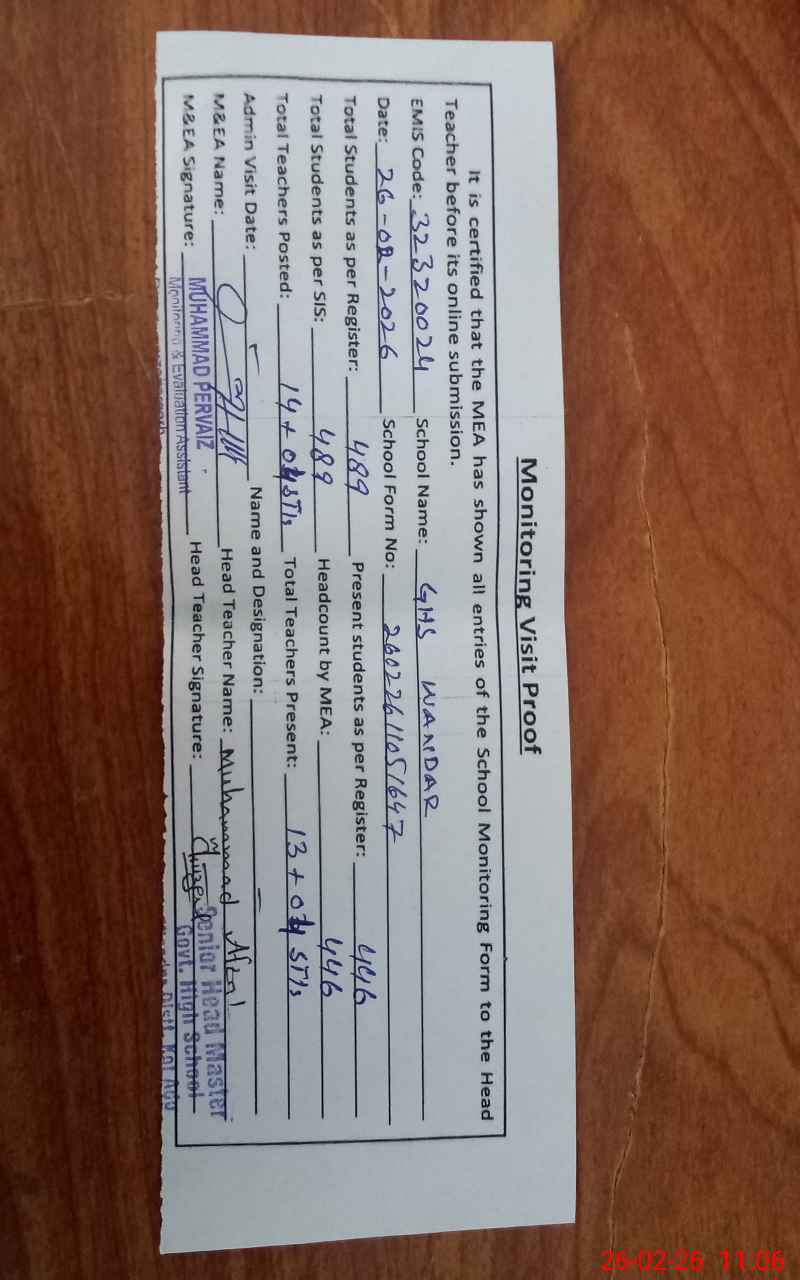 Monitoring Visit Proof
It is certified that the MEA has shown all entries of the School Monitoring Form to the Head
Teacher before its online submission.
EMIS Code: 32320024 School Name: GHS WANDAR
Date: 26-02-2026 School Form No: 26022611051647
Total Students as per Register: 489 Present students as per Register: 446
Total Students as per SIS: 489 Headcount by MEA: 446
Total Teachers Posted: 14 + 04 STIs Total Teachers Present: 13 + 04 STIs
Admin Visit Date: - Name and Designation: -
M&EA Name: Head Teacher Name: Muhammad Afzal
M&EA Signature: MUHAMMAD PERVAIZ Head Teacher Signature: Senior Head Master
Monitoring & Evaluation Assistant Govt. High School
Distt. Kot Adu
26-02-26 11:06